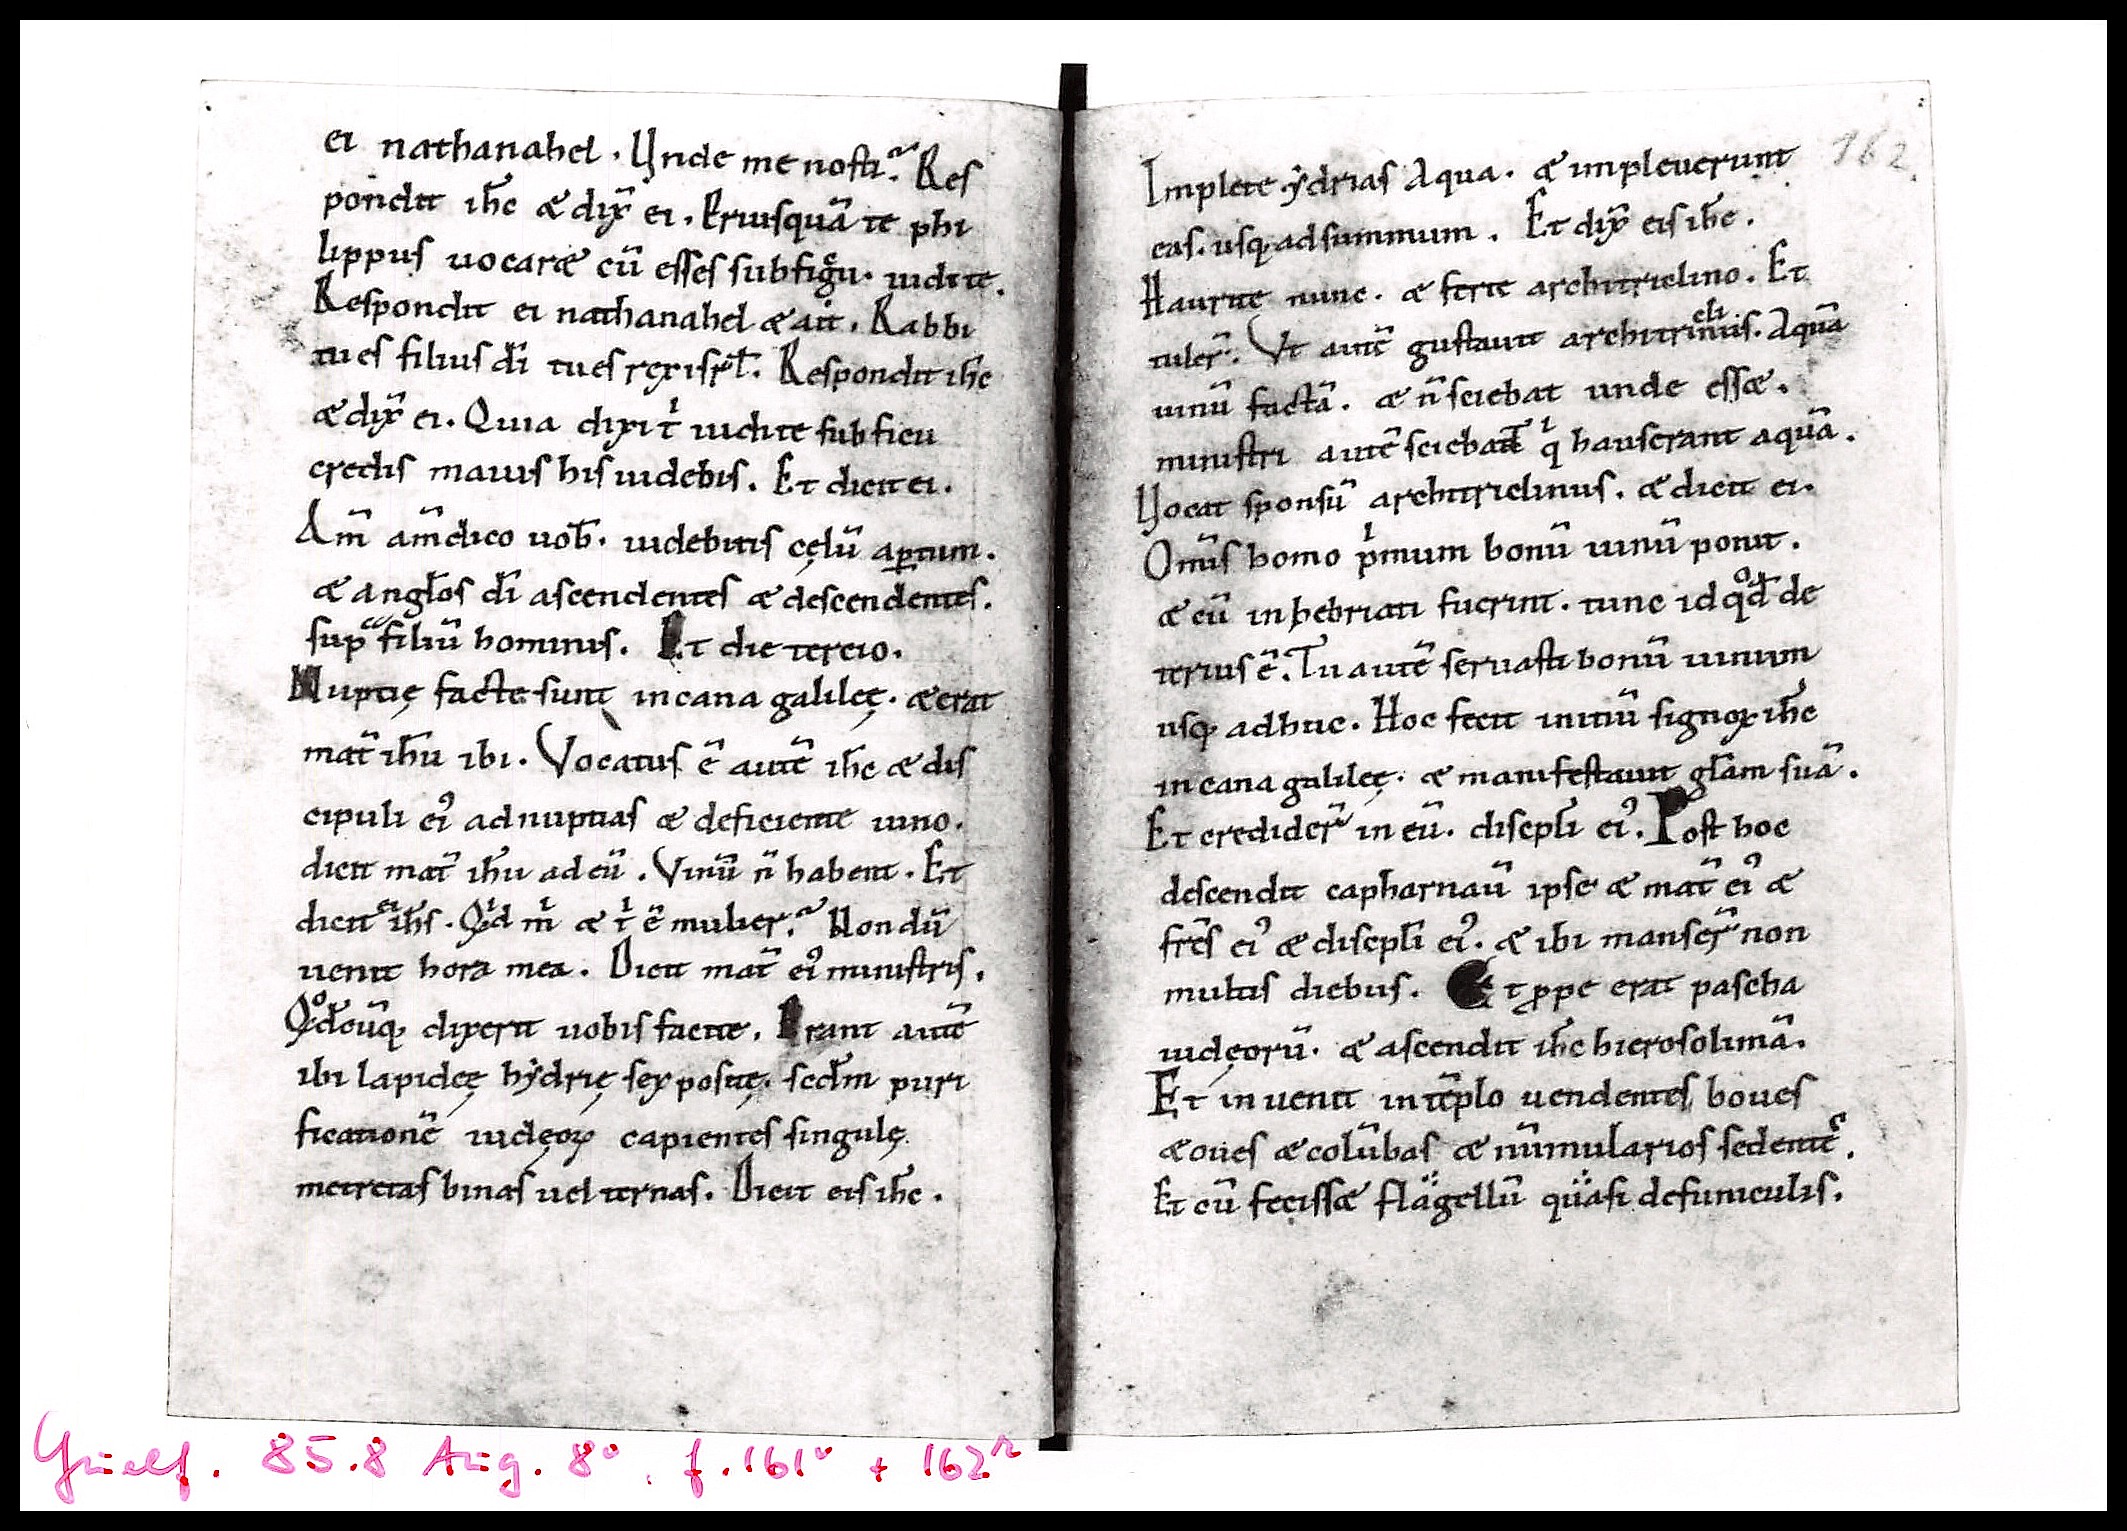 ei nathanahel. Unde me nosti? Res
pondit ih̄c æ dix̄ ei. Priusquā te phi
lippus uocaræ cū esses sub figͨu. uidi te.
Respondit ei nathanahel æ ait. Rabbi
tu es filius dī tu es rex isrł. Respondit ih̄c
æ dix̄ ei. Quia dixi tⁱ uidi te sub ficu
credis maius his uidebis. Et dicit ei.
Am̄ am̄ dico uob̄. uidebitis cęlū aꝑtum.
æ angl̄os dī ascendentes æ descendentes.
supͣ filiū hominis. Et die tercio.
Nuptię facte sunt in cana galileę. æ erat
mat̄ ih̄u ibi. Vocatus ē autē ih̄c æ dis
cipuli ei᾿ ad nuptias æ deficiente uino.
dicit mat̄ ih̄u ad eū. Vinū n̄ habent. Et
dicit ei ih̄s. Qⁱd mⁱ æ tⁱ ē mulier? Non dū
uenit hora mea. Dicit mat̄ ei᾿ ministris.
Qͦdcūq; dixerit uobis facite. Erant autē
ibi lapideę hẏdrię sex positę. secd̄m puri
ficationē iudęoꝝ capientes singulę
metretas binas uel ternas. Dicit eis ih̄c.
162
Implete ẏdrias Aqua. æ impleuerunt
eas. usq; ad summum. Et dix̄ eis ih̄c.
Haurite nunc. æ ferte architriclino. Et
tuler̄. Vt autē gustauit architriclinus. Aquā
uinū factā. æ n̄ sciebat unde essæ.
ministri autē sciebant qⁱ hauserant aquā.
Uocat sponsū architriclinus. æ dicit ei.
Om̄is homo pⁱmum bonū uinū ponit.
æ cū inhebriati fuerint. tunc id qͦd de
terius ē. Tu autē seruasti bonū uinum
usq; adhuc. Hoc fecit initiū signoꝝ ih̄c
in cana galileę. æ manifestauit gl̄am suā.
Et credider̄ in eū. discpl̄i ei᾿. Post hoc
descendit capharnaū ipse æ mat̄ ei᾿ æ
fr̄es ei᾿ æ discpl̄i ei᾿. æ ibi manser̄ non
multis diebus. Et ꝓpe erat pascha
iudęorū. æ ascendit ih̄c hierosolimā.
Et inuenit in tēplo uendentes boues
æ oues æ colūbas æ nūmularios sedentēs.
Et cū fecissæ flagellū quasi de funiculis.
Guelf. 85.8 Aug. 8°. f. 161ᵛ + 162ʳ